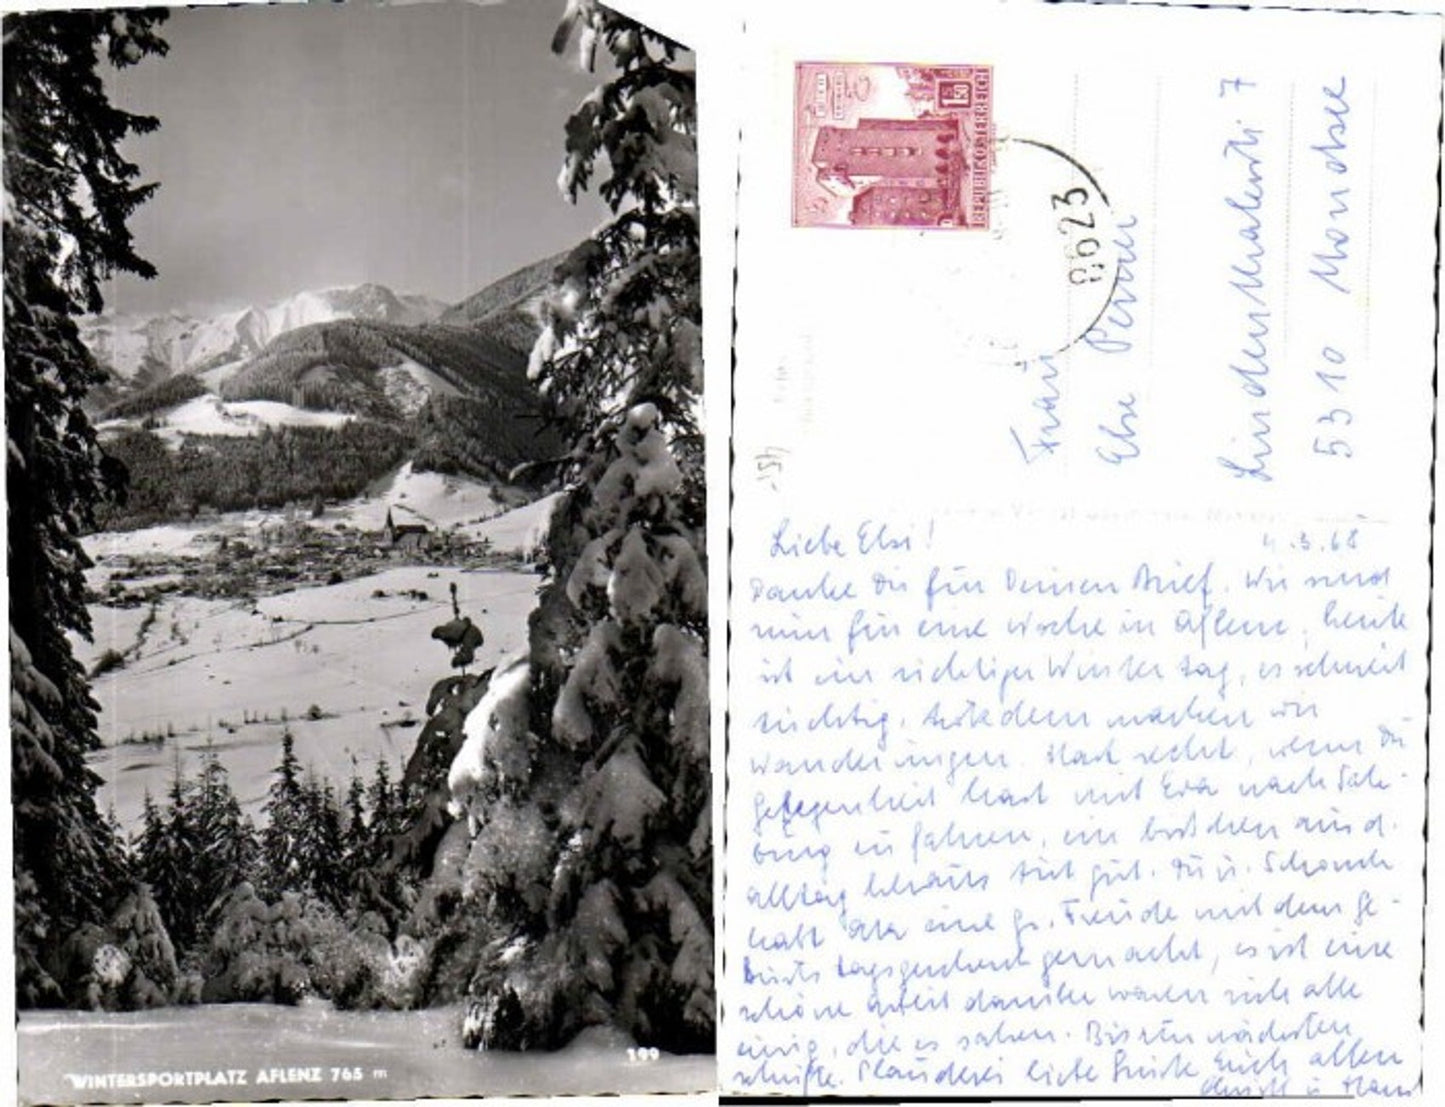 WINTERSPORTPLATZ AFLENZ 765 m
199
REPUBLIK ÖSTERREICH
1.50
8623
Frau
Else
Lindenthalerstr 7
5310 Mondsee
Liebe Elsi! 4.3.68
Danke Dir für Deinen Brief. Wir sind
nun für eine Woche in Aflenz, heute
ist ein richtiger Winter tag, es schneit
tüchtig. trotzdem machen wir
Wanderungen. Hast recht, wenn Du
Gelegenheit hast mit Eva nach Salz-
burg zu fahren, ein bißchen aus d.
alltag heraus tut gut. Du u.
habt eine gr. Freude mit dem Ge-
burtstagsgeschenk gemacht, es ist eine
schöne arbeit darüber waren sich alle
einig, die es sahen. Bis zur nächsten
Plauderei liebe Grüße Euch allen
u Hans